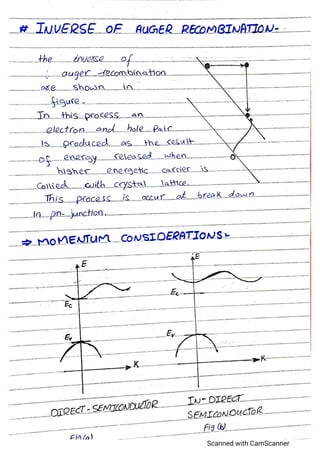 # INVERSE OF AUGER RECOMBINATION-
the inverse of
: auger -recombination
are shown in
figure.
In this process an
electron and hole Pair
is produced as the result
of energy released when
higher energetic carrier is
Collied with crystal lattice.
This process is occur at break down
In pn- junction.
⇒ MOMENTUM CONSIDERATIONS-
E
Ec
Ev
K
DIRECT - SEMICONDUCTOR
Fig (a)
E
Ec
Ev
K
IN- DIRECT
SEMICONDUCTOR
Fig (b)
Scanned with CamScanner